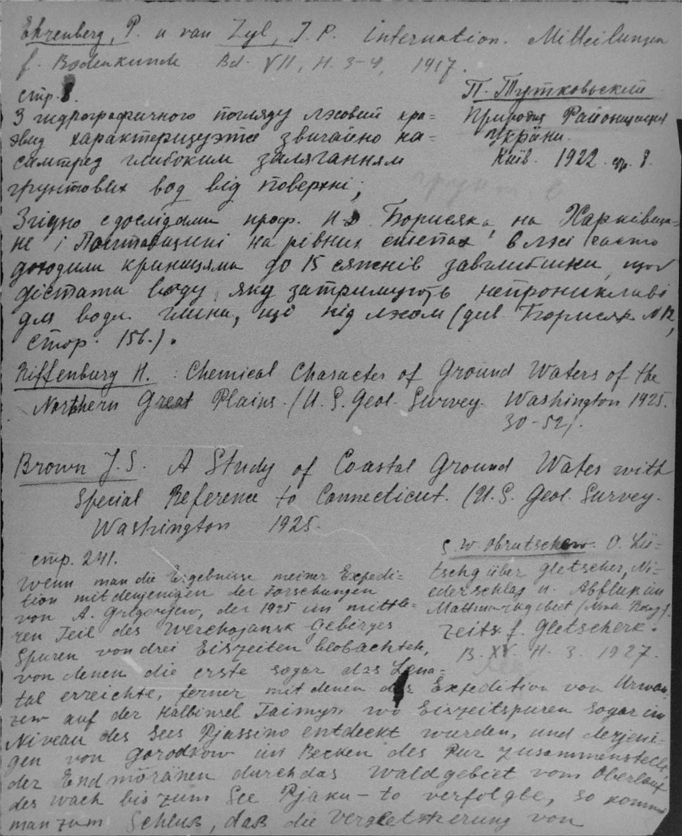 Ehrenberg, P. и van Zyl, J. P. Internation. Mitteilungen
f. Bodenkunde Bd. VII, H. 3-4, 1917.
П. Тутковський
Природня Районізація
України.
Київ. 1922. стр. 8.
стр. 8.
З гидрографичного погляду лесовий кра=
эвид характеризуэтся звичайно на=
сампред глибоким заляганням
грунтових вод від поверхні;
Згідно с дослідами проф. Н. Д. Борисяка, на Харківщи-
не і Полтавщині на рівних степах, в лесі часто
доходили криницями до 15 сяжнів завглибшки, щоб
дістати воду, яку затримують непроникливі
для води глини, що під лесом (див. Борисяк №12,
стор. 156.).
Riffenburg H. Chemical Character of Ground Waters of the
Northern Great Plains. (U. S. Geol. Survey. Washington 1925.
30-52).
Brown J. S. A Study of Coastal Ground Water with
Special Reference to Connecticut. (U. S. Geol. Survey.
Washington 1925.
S. W. Obrutschew. O. Lü-
tschg über Gletscher, Ni-
ederschlag u. Abfluß im
Mattmarkgebiet
Zeits f. Gletscherk.
B. XV. H. 3. 1927.
стр. 241.
Wenn man die Ergebnisse meiner Expedi-
tion mit denjenigen der Forschungen
von A. Grigorjew, der 1925 im mittle-
ren Teil des Werchojansk Gebirges
Spuren von drei Eiszeiten beobachtete,
von denen die erste sogar das Lena-
tal erreichte, ferner mit denen der Expedition von Urwan-
zew auf der Halbinsel Taimyr wo Eiszeitspuren sogar im
Niveau des Sees Pjassino entdeckt wurden, und derjeni-
gen von Gorodkow im Becken des Pur zusammenstellt,
der Endmoränen durch das Waldgebiet vom Oberlauf
des Wach bis zum See Pjaku-to verfolgte, so kommt
man zum Schluß, daß die Vergletscherung von